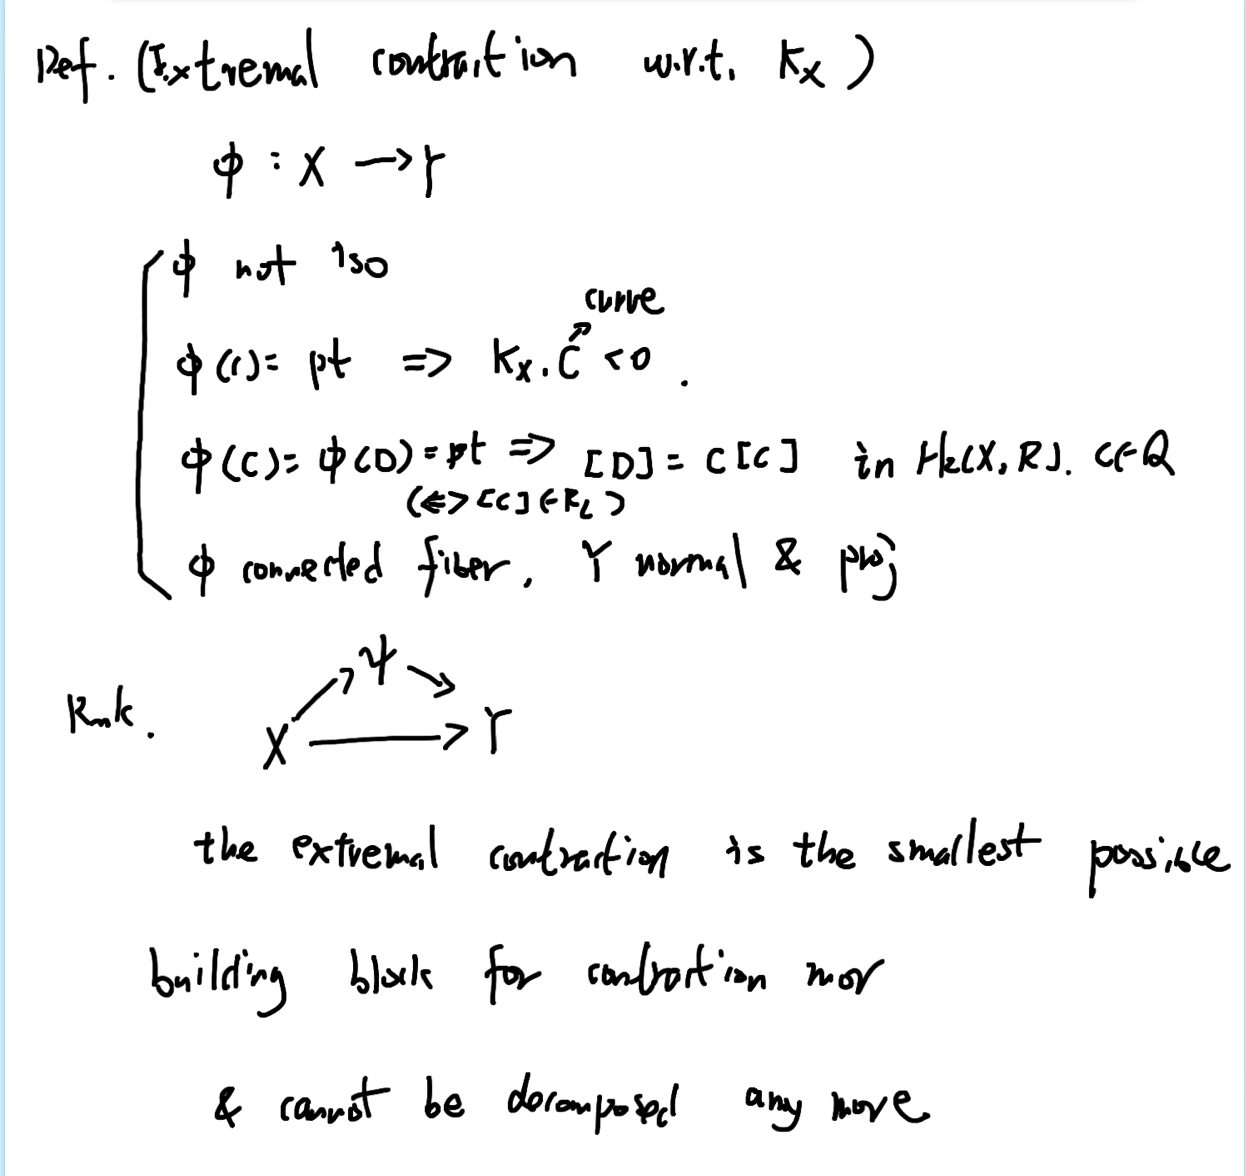 Def. (Extremal contraction w.r.t. Kx)
φ : X → Y
φ not iso
curve
φ(C) = pt ⇒ Kx . C < 0 .
φ(C) = φ(D) = pt ⇒ [D] = c[C] in H₂(X, R). c ∈ Q
(⇔ [C] ∈ R_L)
φ connected fiber, Y normal & proj
Rmk. X → ψ → Y
X → Y
the extremal contraction is the smallest possible
building block for contraction mor
& cannot be decomposed any more